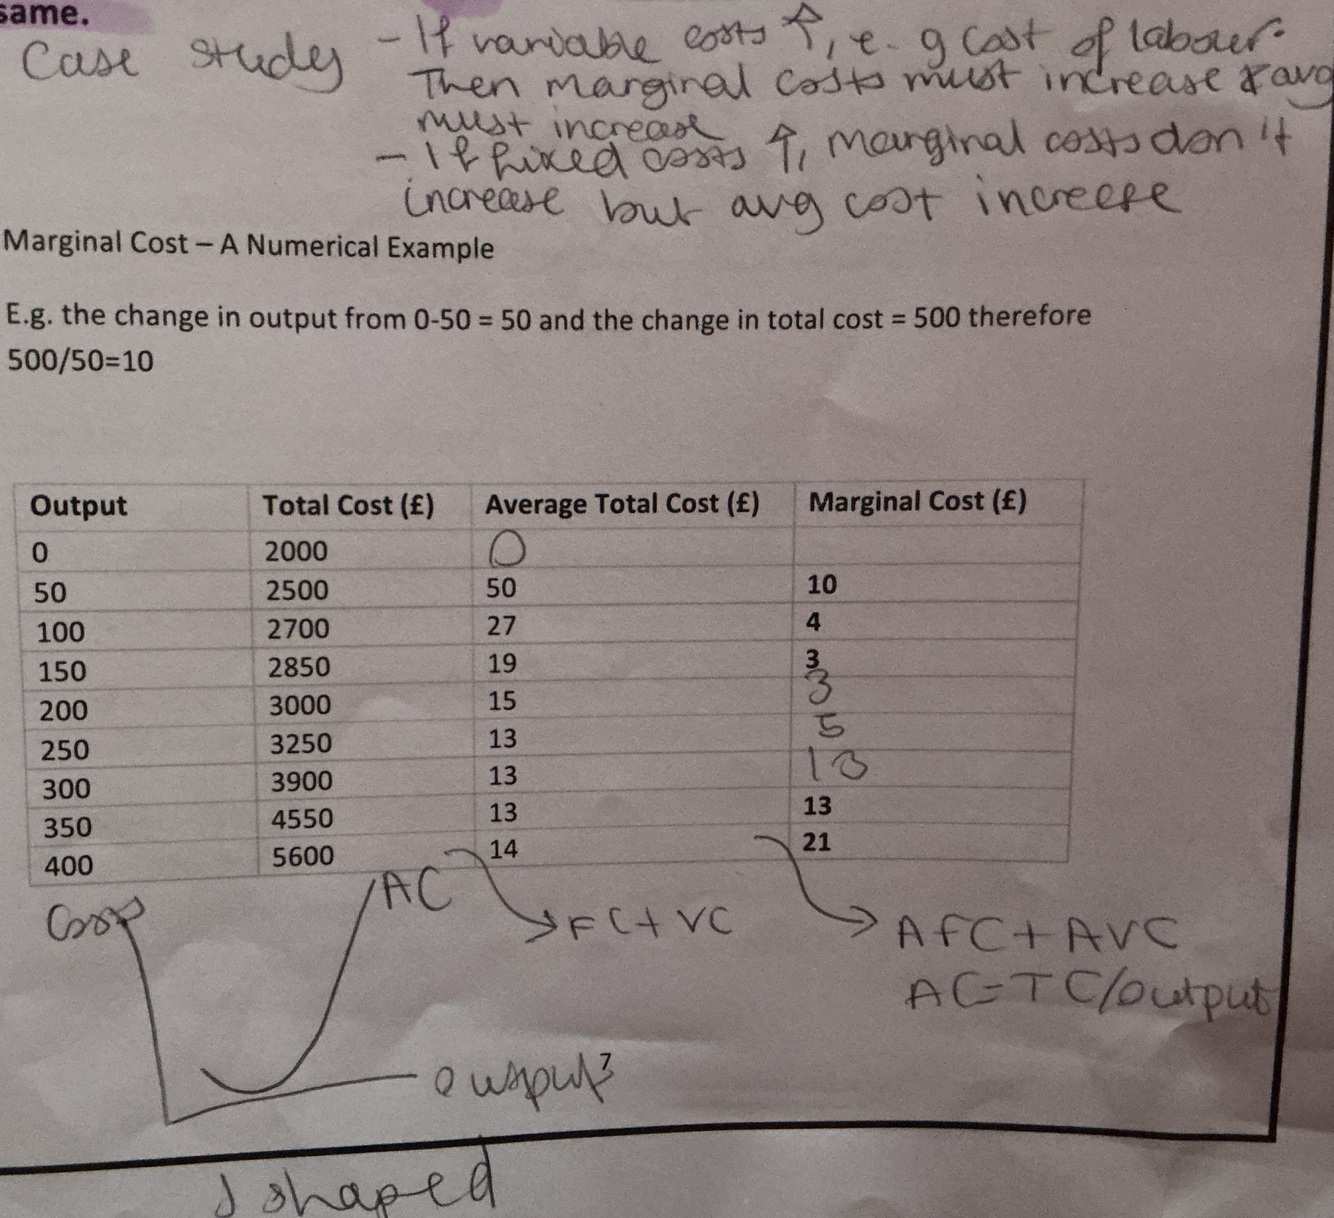 same.
Case study - If variable costs ↑, e.g cost of labour.
Then marginal costs must increase & avg
must increase
- If fixed costs ↑, marginal costs don't
increase but avg cost increase
Marginal Cost – A Numerical Example
E.g. the change in output from 0-50 = 50 and the change in total cost = 500 therefore
500/50=10
Output Total Cost (£) Average Total Cost (£) Marginal Cost (£)
0 2000 0
50 2500 50 10
100 2700 27 4
150 2850 19 3
200 3000 15 3
250 3250 13 5
300 3900 13 13
350 4550 13 13
400 5600 14 21
Cost AC → FC + VC → AFC + AVC
AC = TC/output
output 7
J shaped